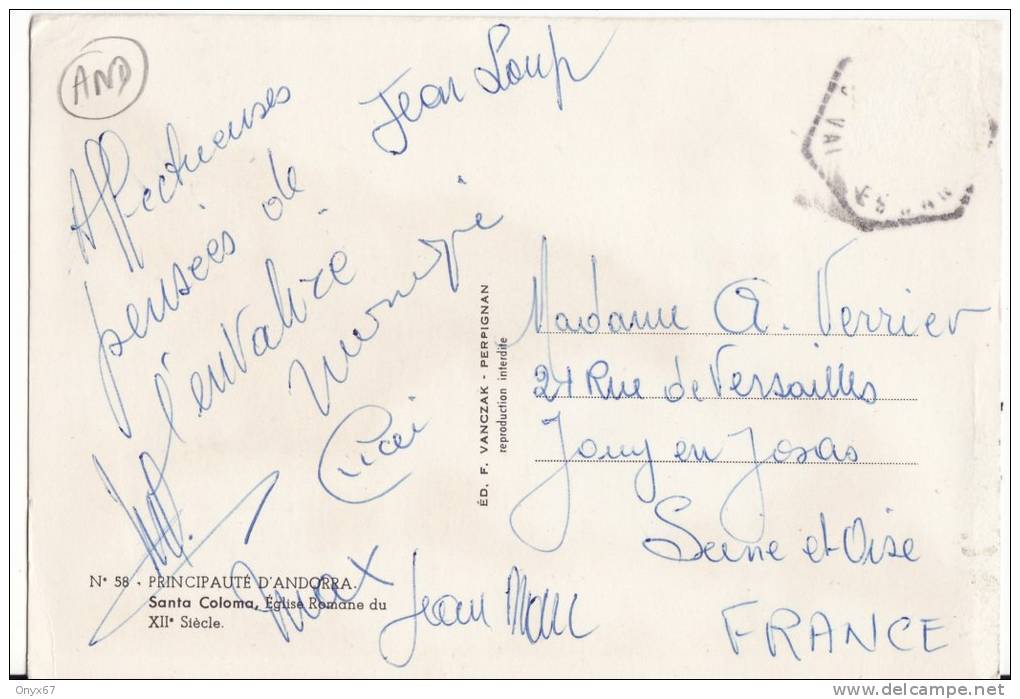 AND
Affectueuses
pensées de
l'envalire
Jean Loup
Max
Jean Marc
N° 58 - PRINCIPAUTÉ D'ANDORRA.
Santa Coloma, Église Romane du
XIIe Siècle.
ÉD. F. VANCZAK - PERPIGNAN
reproduction interdite
Madame A. Verrier
21 Rue de Versailles
Jouy en Josas
Seine et Oise
FRANCE
Onyx67
www.delcampe.net